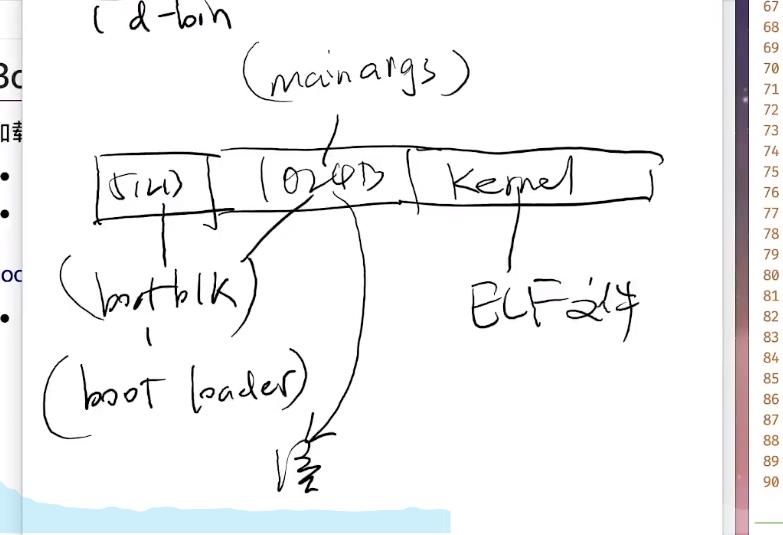 d-bin
(mainargs)
512B 1024B Kernel
(bootblk)
ELF文件
(boot loader)
67
68
69
70
71
72
73
74
75
76
77
78
79
80
81
82
83
84
85
86
87
88
89
90